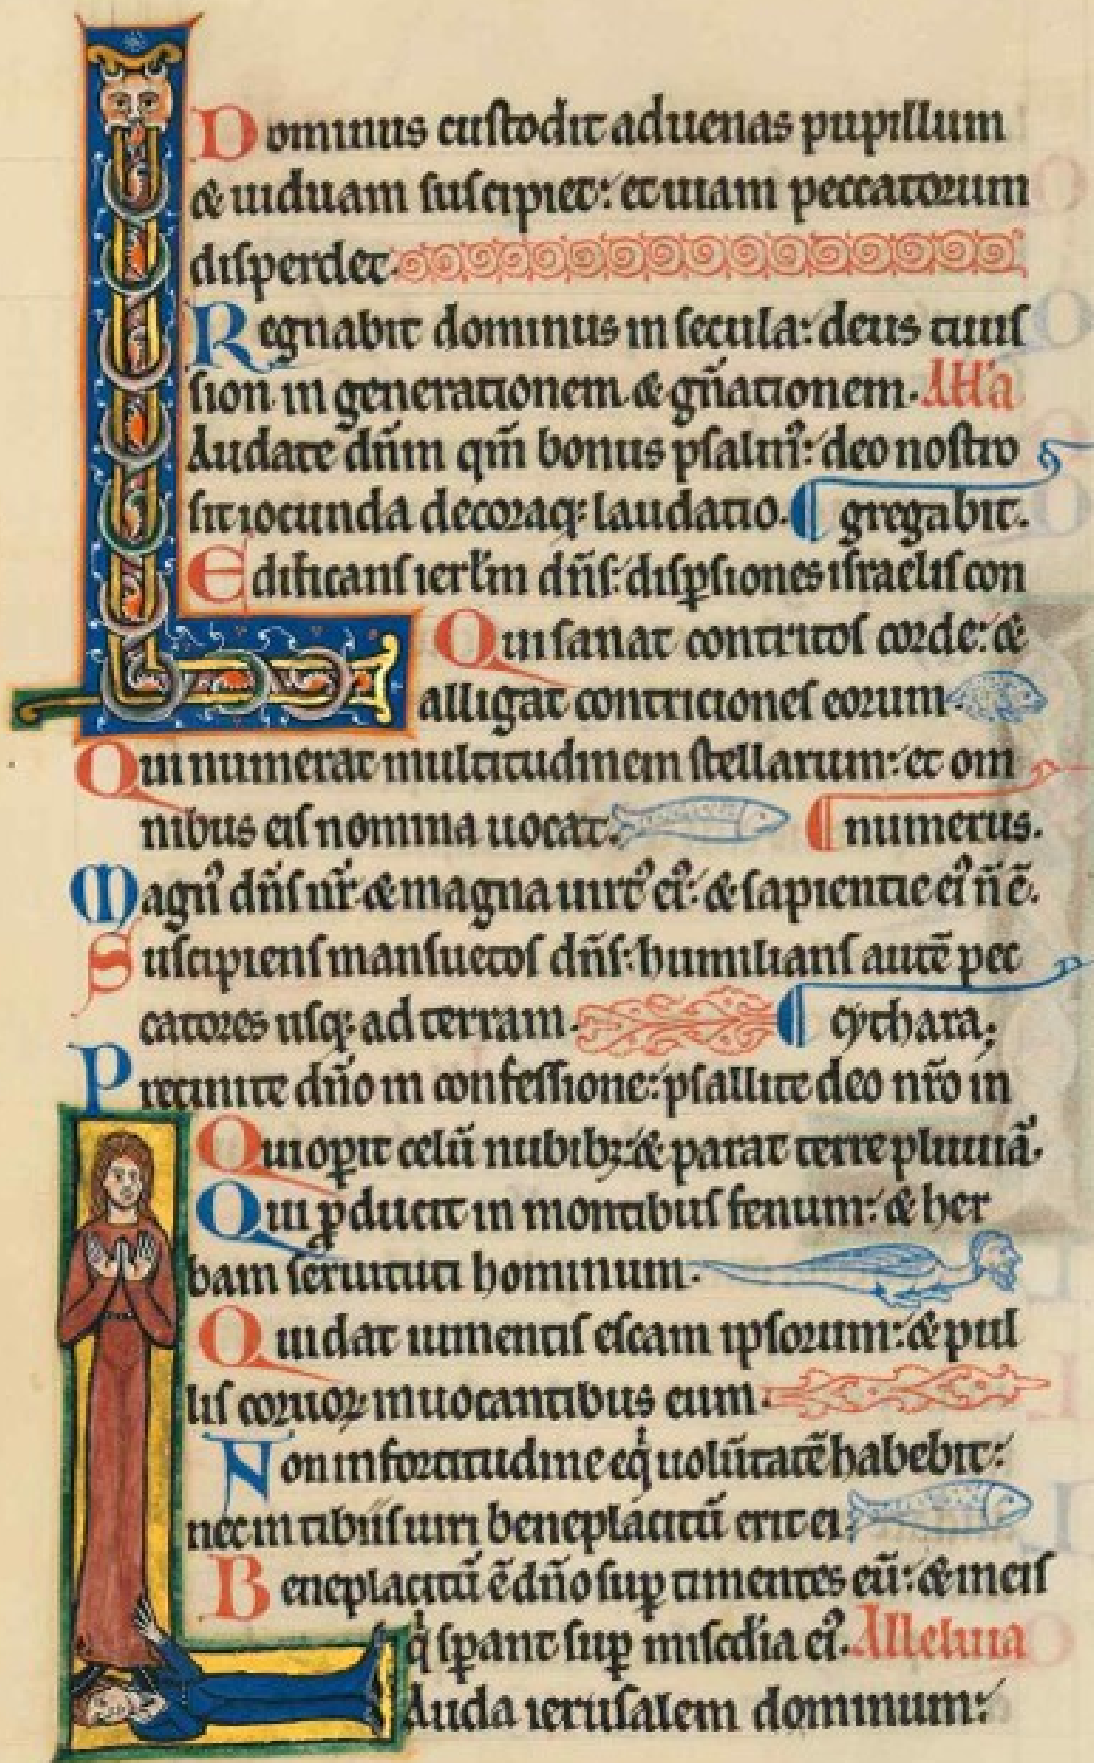 Dominus custodit aduenas pupillum
& uiduam suscipiet: et uiam peccatorum
disperdet.
Regnabit dominus in secula: deus tuus
sion in generationem & gñationem. All'a
Laudate dñm qm̃ bonus psalm᷒: deo nostro
sit iocunda decoraq; laudatio. gregabit.
Edificans ierl̃m dñs: disp̱siones israelis con
Qui sanat contritos corde: &
alligat contriciones eorum
Qui numerat multitudinem stellarum: et om
nibus eis nomina uocat. numerus.
Magn᷒ dñs nr̃ & magna uirt᷒ ei᷒: & sapientie ei᷒ ñ ẽ.
Suscipiens mansuetos dñs: humilians autẽ pec
catores usq; ad terram. cythara;
Precinite dño in confessione: psallite deo nrõ in
Qui op̱it celũ nubib; & parat terre pluuiã.
Qui ꝓducit in montibus fenum: & her
bam seruituti hominum.
Qui dat iumentis escam ipsorum: & pul
lis coruoꝝ inuocantibus eum.
Non in fortitudine eq̍ uolũtatẽ habebit:
nec in tibiis uiri beneplacitũ erit ei.
Beneplacitũ ẽ dño sup̱ timentes eũ: & in eis
q̍ sp̱ant sup̱ mis̃cdia ei᷒. Alleluia
Lauda ierusalem dominum: